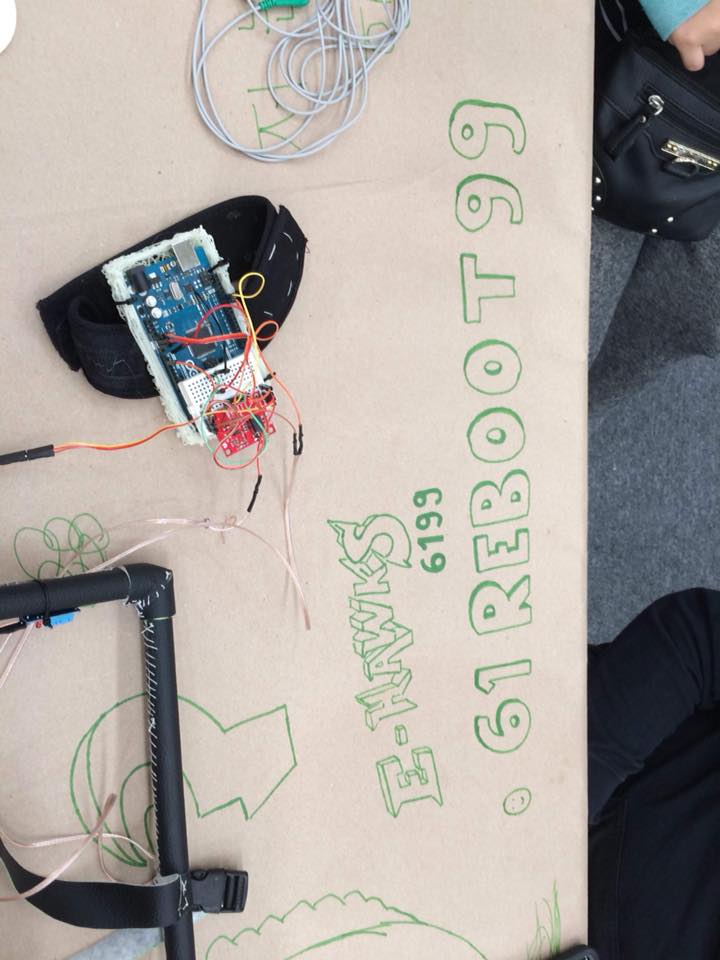 E-HAWKS
6199
61REBOOT99